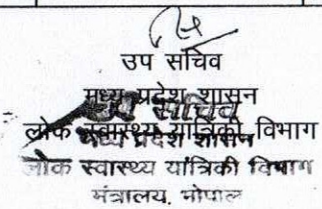 उप सचिव
मध्य प्रदेश शासन
उप सचिव
लोक स्वास्थ्य यांत्रिकी विभाग
मध्य प्रदेश शासन
लोक स्वास्थ्य यांत्रिकी विभाग
मंत्रालय, भोपाल